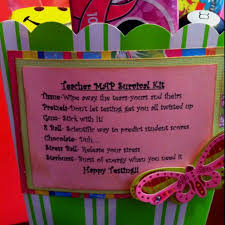 Teacher MAP Survival Kit
Tissue-Wipe away the tears yours and theirs
Pretzels-Don't let testing get you all twisted up
Gum- Stick with it!
8 Ball- Scientific way to predict student scores
Chocolate- Duh....
Stress Ball- Release your stress
Starburst- Burst of energy when you need it
Happy Testing!!